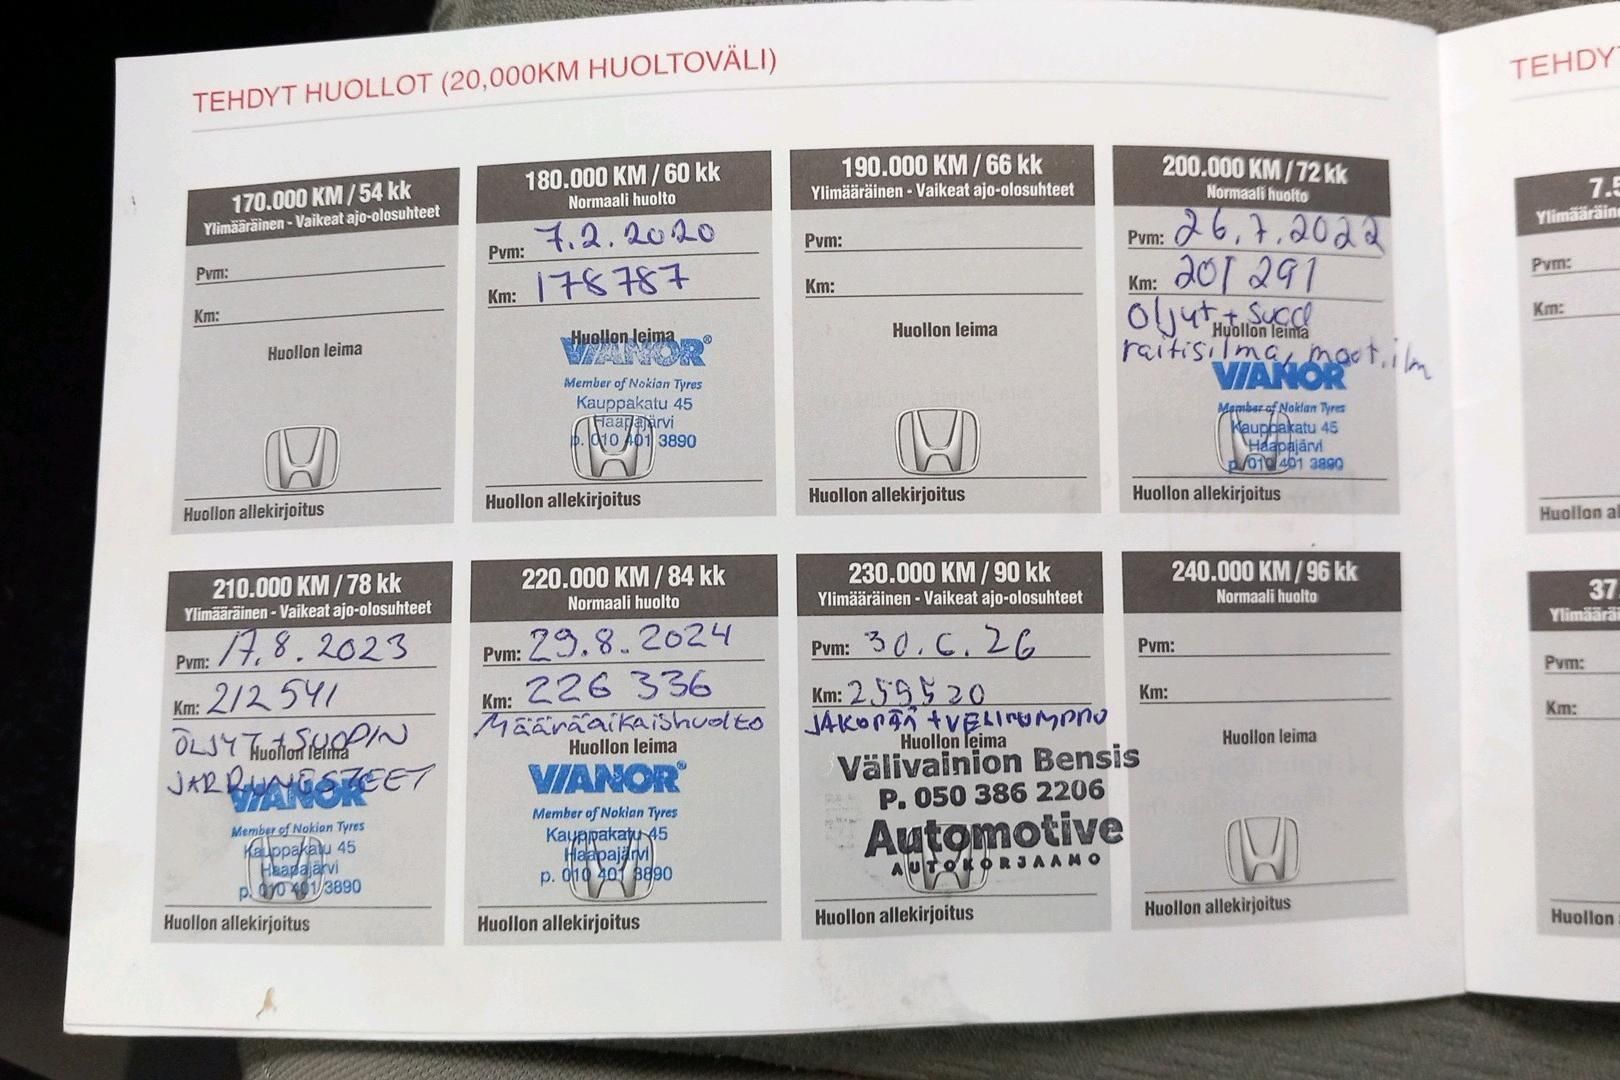 TEHDYT HUOLLOT (20,000KM HUOLTOVÄLI)
170.000 KM / 54 kk
Ylimääräinen - Vaikeat ajo-olosuhteet
Pvm:
Km:
Huollon leima
Huollon allekirjoitus
180.000 KM / 60 kk
Normaali huolto
Pvm: 7.2.2020
Km: 178787
Huollon leima
VIANOR®
Member of Nokian Tyres
Kauppakatu 45
Haapajärvi
p. 010 401 3890
Huollon allekirjoitus
190.000 KM / 66 kk
Ylimääräinen - Vaikeat ajo-olosuhteet
Pvm:
Km:
Huollon leima
Huollon allekirjoitus
200.000 KM / 72 kk
Normaali huolto
Pvm: 26.7.2022
Km: 201 291
Öljyt + suod
Huollon leima
raitisilma, moot.ilm
VIANOR
Member of Nokian Tyres
Kauppakatu 45
Haapajärvi
p. 010 401 3890
Huollon allekirjoitus
210.000 KM / 78 kk
Ylimääräinen - Vaikeat ajo-olosuhteet
Pvm: 17.8.2023
Km: 212 541
ÖLJYT + SUODIN
Huollon leima
JARRUNESTEET
VIANOR
Member of Nokian Tyres
Kauppakatu 45
Haapajärvi
p. 010 401 3890
Huollon allekirjoitus
220.000 KM / 84 kk
Normaali huolto
Pvm: 29.8.2024
Km: 226 336
Määräaikaishuolto
Huollon leima
VIANOR®
Member of Nokian Tyres
Kauppakatu 45
Haapajärvi
p. 010 401 3890
Huollon allekirjoitus
230.000 KM / 90 kk
Ylimääräinen - Vaikeat ajo-olosuhteet
Pvm: 30.6.26
Km: 259520
JAKOPÄÄ + VESIPUMPPU
Huollon leima
Välivainion Bensis
P. 050 386 2206
Automotive
AUTOKORJAAMO
Huollon allekirjoitus
240.000 KM / 96 kk
Normaali huolto
Pvm:
Km:
Huollon leima
Huollon allekirjoitus
TEHDY
7.5
Ylimääräin
Pvm:
Km:
Huollon al
37.
Ylimäärä
Pvm:
Km:
Huollon